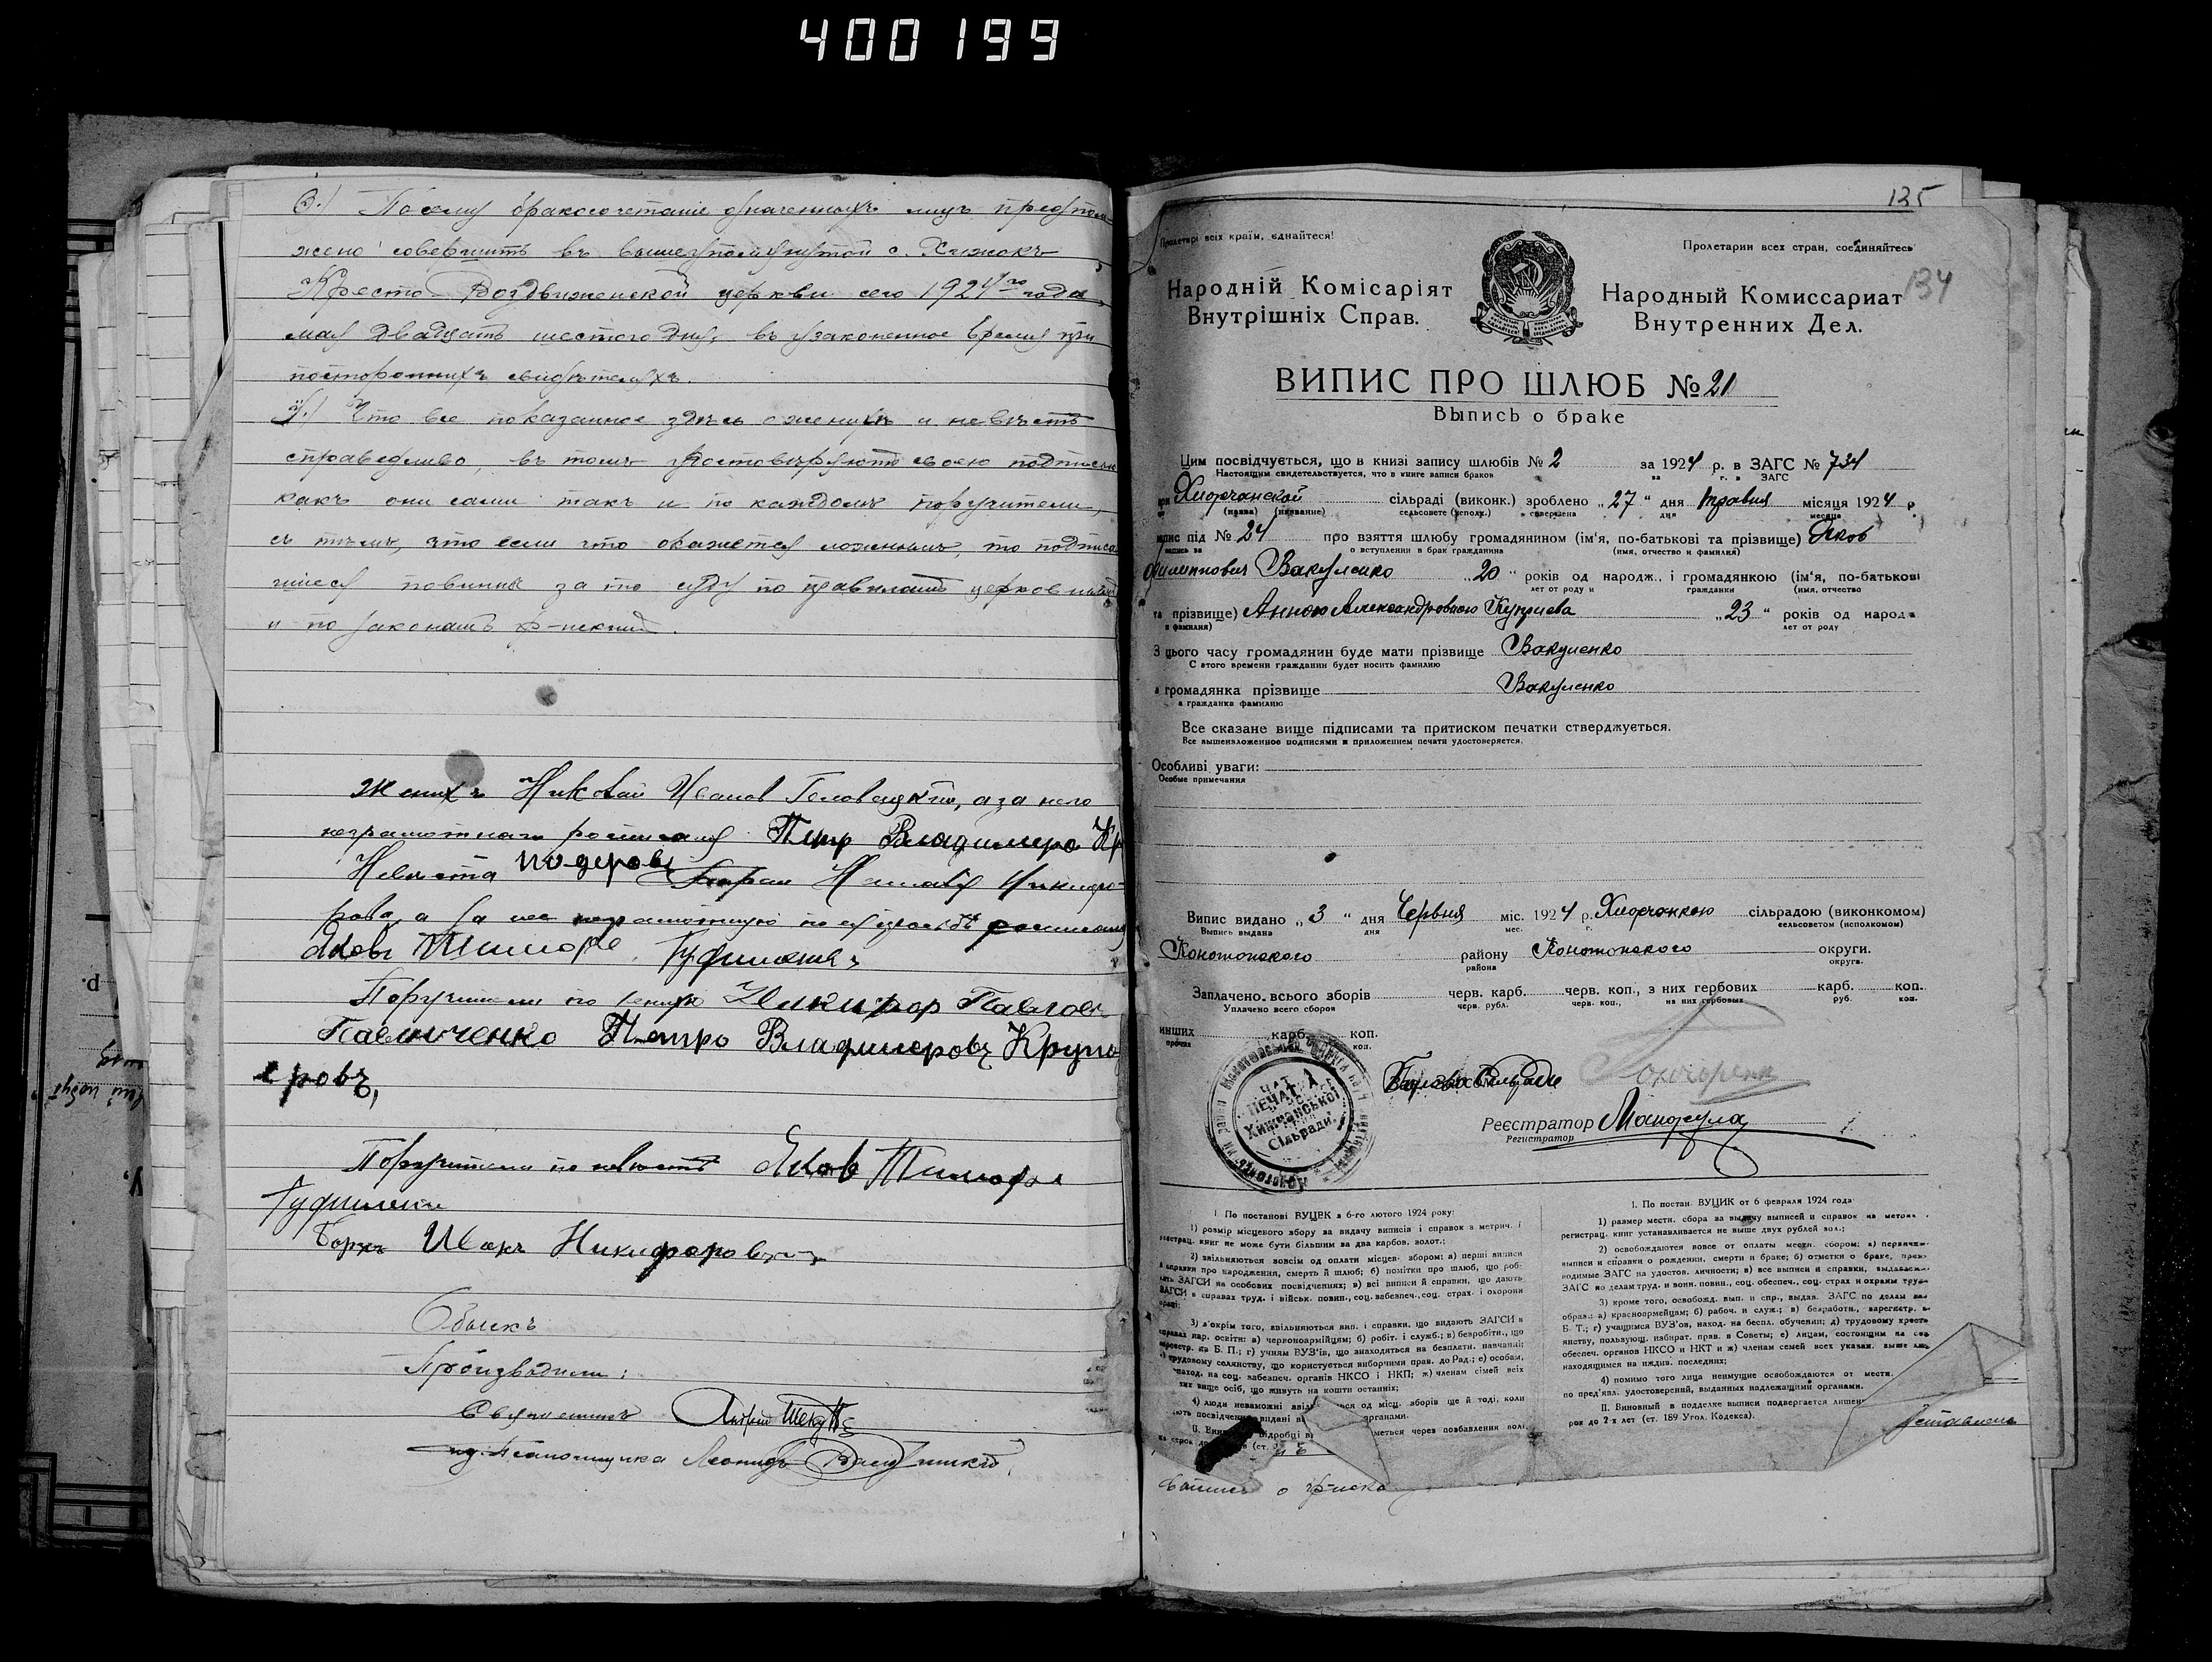 400199
6.) Посему бракосочетаніе означенныхъ лицъ предполо-
жено совершить въ вышеупомянутой с. Хижокъ
Кресто-Воздвиженской церкви сего 1924го года
мая двадцать шестого дня, въ узаконенное время при
постороннихъ свидѣтеляхъ.
7.) Что все показанное здѣсь о женихѣ и невѣстѣ
справедливо, въ томъ удостовѣряютъ своею подписью
какъ они сами такъ и по каждомъ поручители,
съ тѣмъ, что если что окажется ложнымъ, то подписа
вшіеся повинны за то суду по правиламъ церковнымъ
и по законамъ гр-нскимъ.
Женихъ Николай Иванов Головацкій, а за него
неграмотнаго росписался Петр Владимеро Кр
подеровъ
Невѣста
рова, а за нее неграмотную по ея просьбѣ росписался
Яковъ Тимофе Гудименко
Поручители по женихѣ Никифор Павловъ
Павлюченко Петро Владимеровъ Круго
еровъ,
Поручители по невѣстѣ Яков Тимофе
Гудименко
Иванъ Никифоровъ
Обыскъ
Производили:
Священникъ Андрей
Псаломщика Леонидъ
135
134
Пролетарі всіх країн, єднайтеся!
Пролетарии всех стран, соединяйтесь
Народній Комісаріят
Внутрішніх Справ.
Народный Комиссариат
Внутренних Дел.
ВИПИС ПРО ШЛЮБ № 21
Выпись о браке
Цим посвідчується, що в книзі запису шлюбів № 2 за 1924 р. в ЗАГС № 734
Настоящим свидетельствуется, что в книге записи браков за г. в ЗАГС
при Хижчанской сільраді (виконк.) зроблено „27“ дня травня місяця 1924 р
(назва) (название) сельсовете (исполк.) совершена дня месяца
запис під № 24 про взяття шлюбу громадянином (ім'я, по-батькові та прізвище) Яков
запись за о вступлении в брак гражданина (имя, отчество и фамилия)
Филиппович Вакуленко „20“ років од народж., і громадянкою (ім'я, по-батькові
лет от роду и гражданки (имя, отчество
та прізвище) Анною Александровною Куприева „23“ років од народ
и фамилия) лет от роду
З цього часу громадянин буде мати прізвище Вакуленко
С этого времени гражданин будет носить фамилию
а громадянка прізвище Вакуленко
а гражданка фамилию
Все сказане вище підписами та притиском печатки стверджується.
Все вышеизложенное подписями и приложением печати удостоверяется.
Особливі уваги:
Особые примечания
Випис видано „3“ дня Червня міс. 1924 р. Хижчанкою сільрадою (виконкомом)
Выпись выдана дня мес. г. сельсоветом (исполкомом)
Конотопского району Конотопского округи.
района округа.
Заплачено всього зборів черв. карб. черв. коп., з них гербових карб. коп.
Уплачено всего сборов черв. рубл. черв. коп., на них гербовых руб. коп.
инших карб. коп.
прочих коп.
ПЕЧАТКА
Хижчанської
Сільради
Голова Сільради Гончаренко
Реєстратор Манжула
Регистратор
I. По постанові ВУЦВК з 6-го лютого 1924 року:
1) розмір місцевого збору за видачу виписів і справок з метрич. і
реєстрац. книг не може бути більшим за два карбов. золот.;
2) звільняються зовсім од оплати місцев. збором: а) перші виписи
й справки про народження, смерть й шлюб; б) помітки про шлюб, що роб-
лять ЗАГСИ на особових посвідченнях; в) всі виписи й справки, що дають
ЗАГСИ в справах труд. і військ. повин., соц. забезпеч., соц. страх. і охорони
праці;
3) з'окрім того, звільняються вип. і справки, що видають ЗАГСИ в
справах нар. освіти: а) червоноармійцям; б) робіт. і служб.; в) безробітн., що
зареєстр. на Б. П.; г) учням ВУЗ'ів, що знаходяться на безплатн. навчанні;
д) трудовому селянству, що користується виборчими прав. до Рад.; е) особам,
знаход. на соц. забезпеч. органів НКСО і НКП; ж) членам сімей всіх
вище осіб, що живуть на кошти останніх;
4) люди незаможні звіль ься од місц. зборів ще й тоді, коли
ють посвідчення видані в органами.
II. Вин підробці в меться через позбавлення волі
I. По постан. ВУЦИК от 6 февраля 1924 года:
1) размер мести. сбора за выдачу выписей и справок из метрич.
регистрац. книг устанавливается не выше двух рублей зол.;
2) освобождаются вовсе от оплаты местн. сбором: а) первичн.
выписи и справки о рождении, смерти и браке; б) отметки о браке, произ-
водимые ЗАГС на удостов. личности; в) все выписи и справки, выдаваем.
ЗАГС по делам труд. и воин. повин., соц. обеспеч., соц. страх и охраны труда
3) кроме того, освобожд. вып. и спр., выдав. ЗАГС по делам нар.
образ.: а) красноармейцам; б) рабоч. и служ.; в) безработн., зарегистр. в
Б. Т.; г) учащимся ВУЗ'ов, наход. на беспл. обучении; д) трудовому кресть
янству, пользующ. избират. прав. в Советы; е) лицам, состоящим на соц
обеспеч. органов НКСО и НКТ и ж) членам семей всех указан. выше лиц
находящимся на иждив. последних;
4) помимо того лица неимущие освобождаются от местн.
по пред'явл. удостоверений, выданных надлежащими органами.
II. Виновный в подделке выписи подвергается лишен
рок до 2-х лет (ст. 189 Угол. Кодекса).